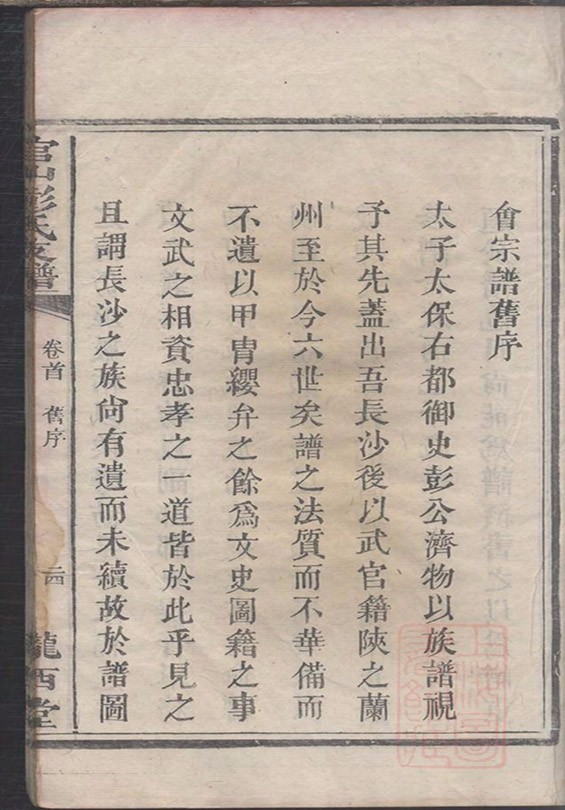 會宗譜舊序
太子太保右都御史彭公濟物以族譜視
予其先蓋出吾長沙後以武官籍陝之蘭
州至於今六世矣譜之法質而不華備而
不遺以甲冑纓弁之餘爲文史圖籍之事
文武之相資忠孝之一道皆於此乎見之
且謂長沙之族尙有遺而未續故於譜圖
官山彭氏支譜
卷首 舊序
隴西堂